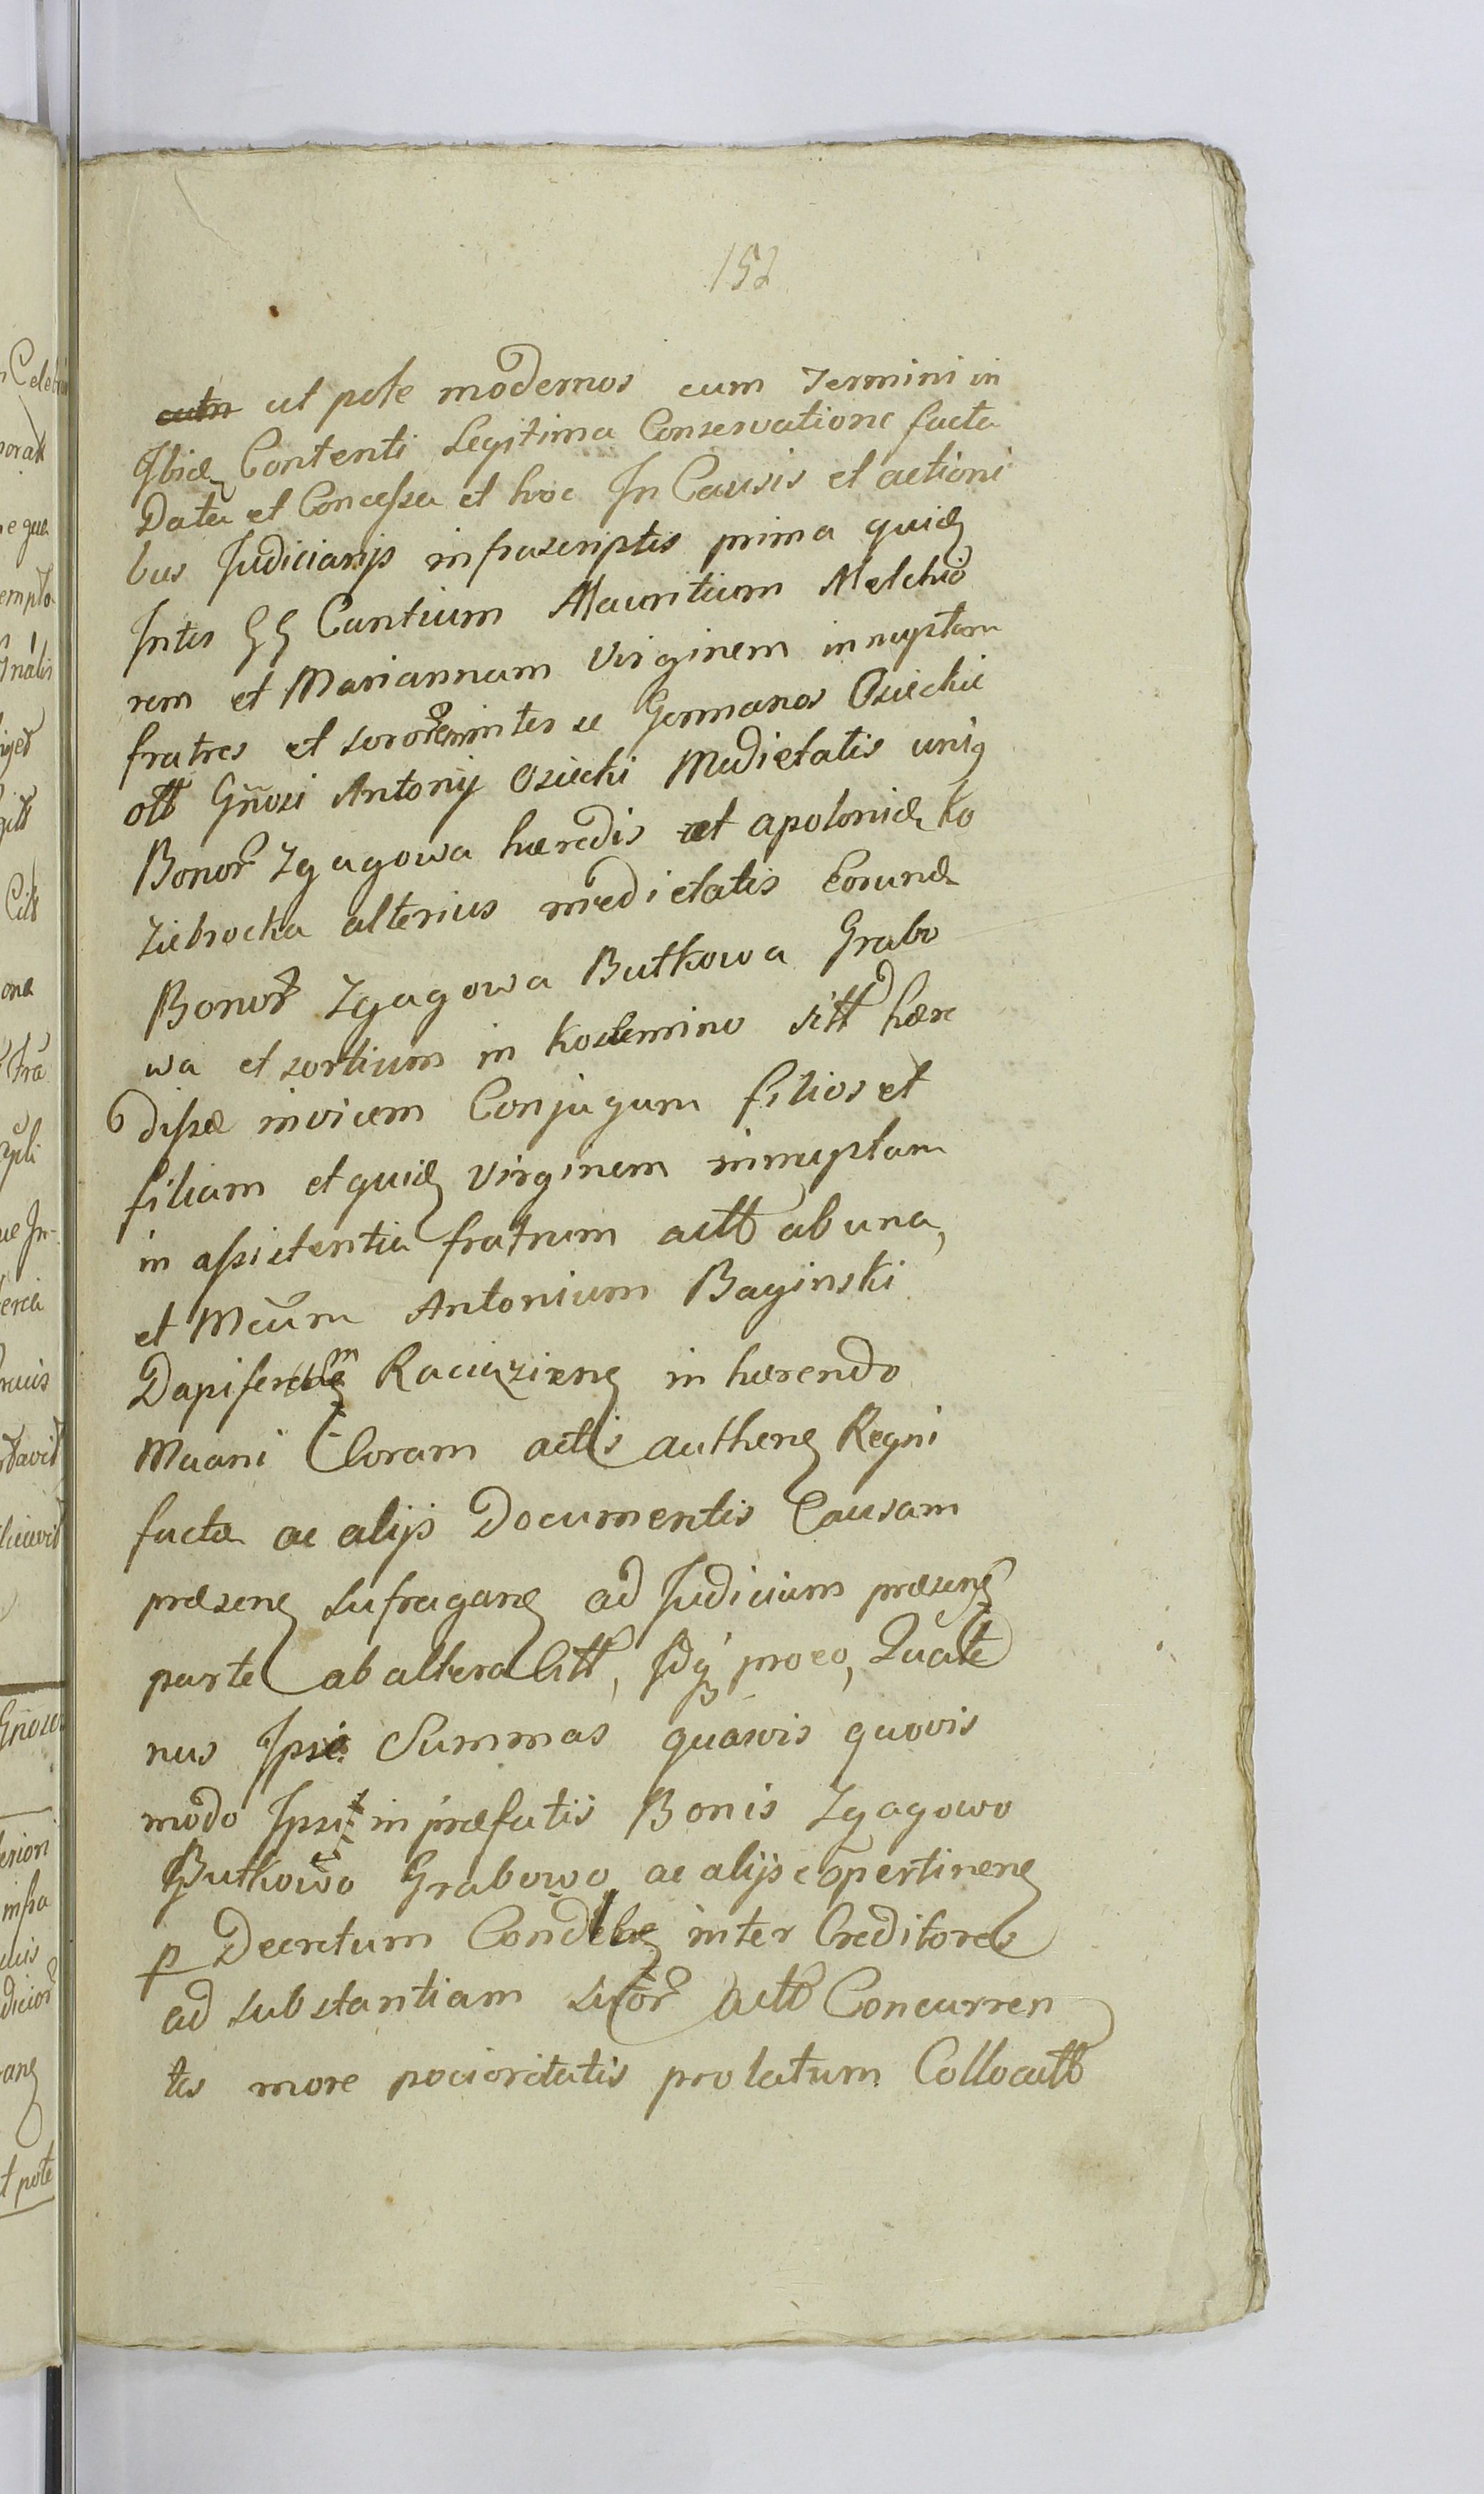 152
ut pote modernos cum Termini in
Ibidę Contenti Legitima Conservatione facta
Data et Concessa et hoc In Causis et actioni
bus Judiciarijs infrascriptis prima quidę
Inter GG Cantium Mauritium Melchio
rem et Mariannam Virginem innuptam
fratres et sororem inter se Germanos Osieckie
ott Gñosi Antonij Osiecki Medietatis uniꝯ
Bonor Zgagowa hæredis et apoloniæ Ko
ziebrocka alterius medietatis Eorund
Bonor Zgagowa Butkowa Grabo
wa et sortium in Koziemino sitt hære
dissæ invicem Conjugum filios et
filiam et quidę Virginem innuptam
in assistentia fratrum actt ab una,
et Mcum Antonium Baginski
Dapiferum Raciązienę in hærendo
Maani Coram actis authenę Regni
facta ac alijs Documentis Causam
præsenę sufraganę ad Judicium præsenę
parte ab altera Citt, Idꝗ pro eo, Quate
nus Ipsi Summas quasvis quovis
modo Ipsis in præfatis Bonis Zgagowo
Butkowo Grabowo ac alijs cōpertinenę
p Decretum inter Creditores
ad substantiam actt Concurren
tes more pocioritatis prolatum Collocatt
Celeb
porat
e qua
empto
Gnalis
Citt
ona
fra
ue In-
erea
infra
dicior
anę
t pote